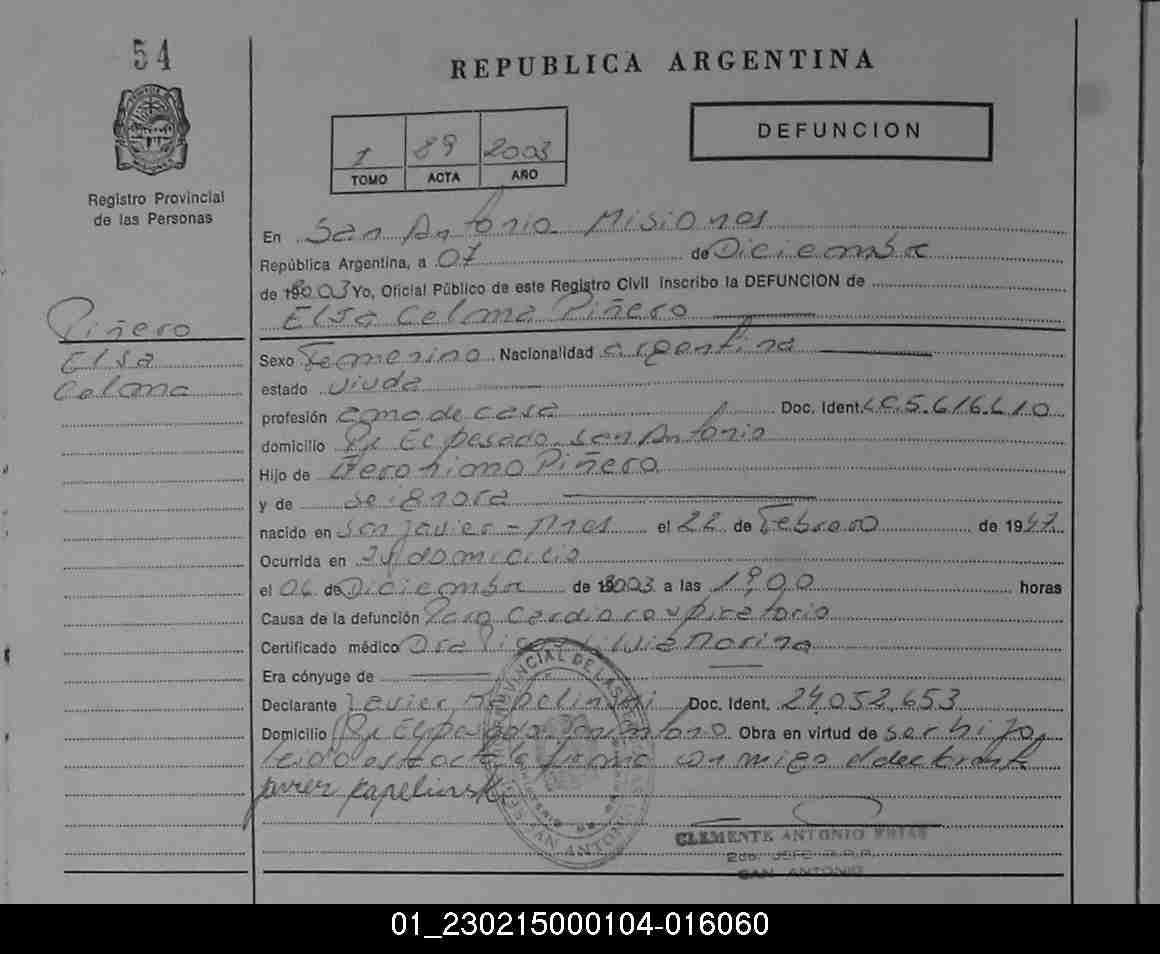 54
REPUBLICA ARGENTINA
DEFUNCION
1 89 2003
TOMO ACTA AÑO
Registro Provincial
de las Personas
En San Antonio Misiones
República Argentina, a 07 de Diciembre
de 2003 Yo, Oficial Público de este Registro Civil inscribo la DEFUNCION de
Elsa Celma Piñero
Piñero
Elsa
Celma
Sexo Femenino Nacionalidad argentina
estado viuda
profesión ama de casa Doc. Ident. LC 5.616.610
domicilio Pje El pesado San Antonio
Hijo de Geronimo Piñero
y de
nacido en San Javier - Mnes el 22 de Febrero de 1947
Ocurrida en su domicilio
el 06 de Diciembre de 2003 a las 19,00 horas
Causa de la defunción Paro Cardiorespiratorio
Certificado médico Dra
Era cónyuge de
Declarante Javier Kapelinski Doc. Ident. 24.052.653
Domicilio Pje El pesado San Antonio Obra en virtud de ser hijo,
leido esta acta la firma conmigo el declarante
Javier Kapelinski
CLEMENTE ANTONIO
2do. JEFE
SAN ANTONIO
01_230215000104-016060